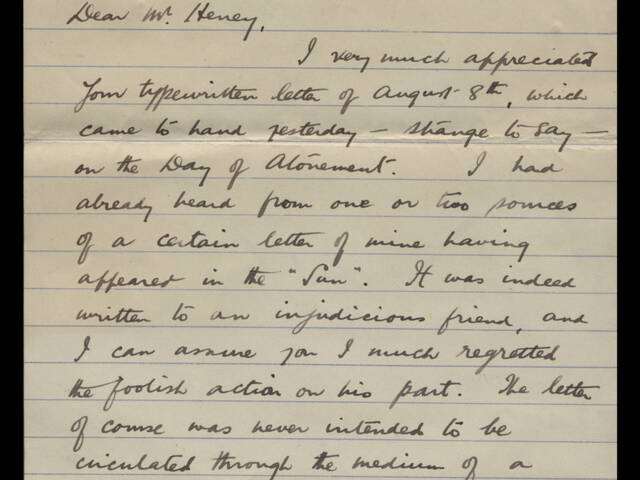 Dear Mr. Heney,
I very much appreciated
your typewritten letter of August 8th, which
came to hand yesterday – strange to say –
on the Day of Atonement. I had
already heard from one or two sources
of a certain letter of mine having
appeared in the "Sun". It was indeed
written to an injudicious friend, and
I can assure you I much regretted
the foolish action on his part. The letter
of course was never intended to be
circulated through the medium of a